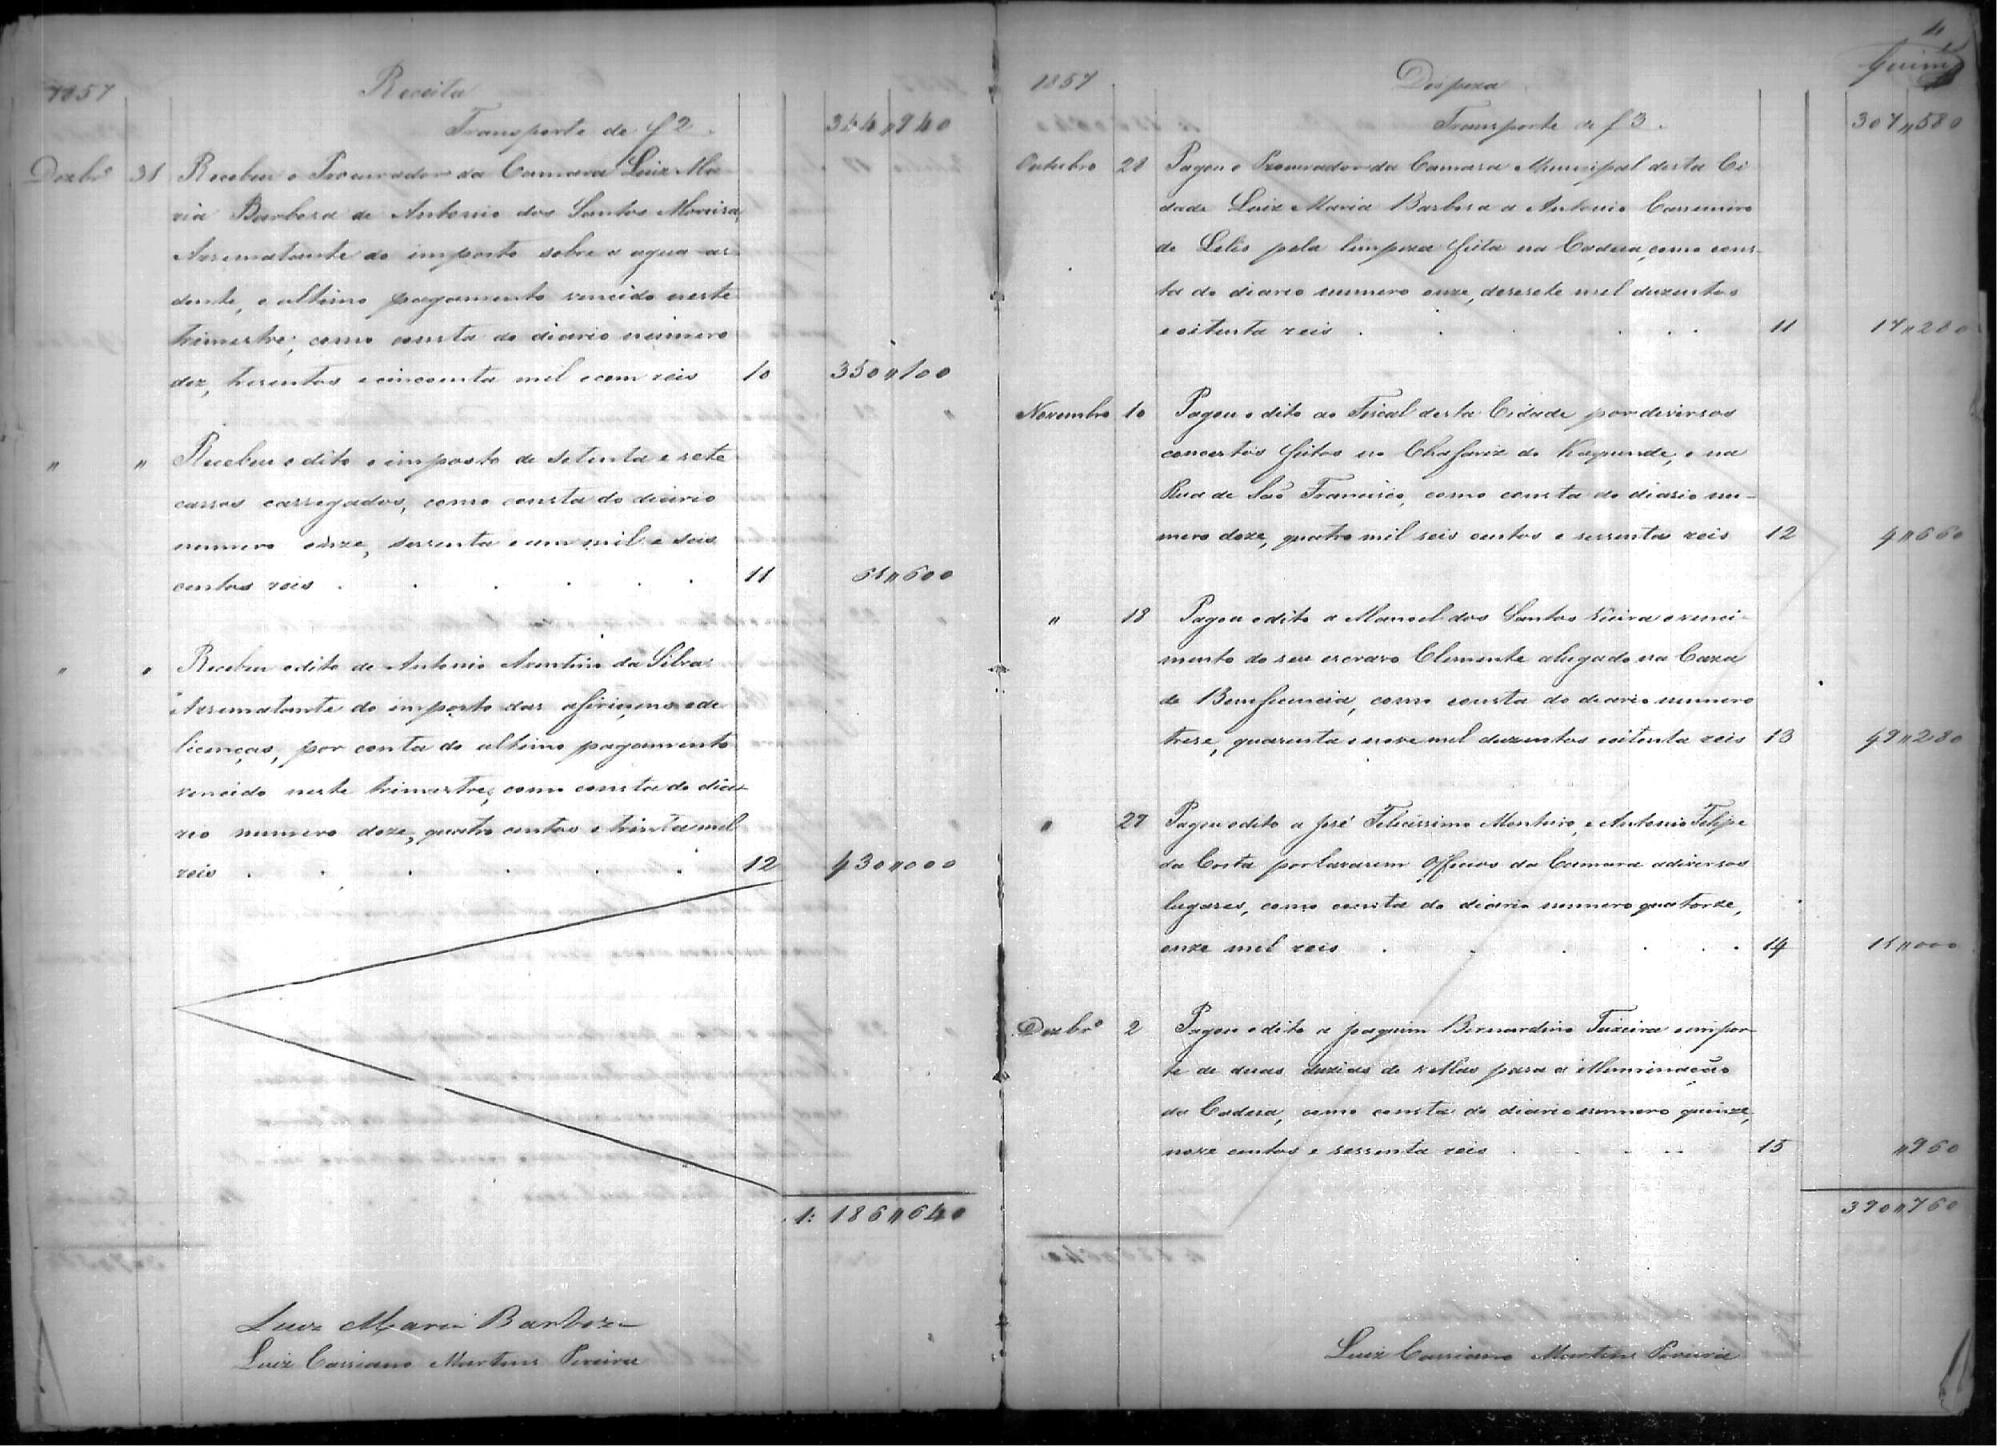 1857
Receita
Transporte de f 2.
344"940
Dezbrº 31 Recebeu o Procurador da Camara Luiz Ma-
ria Barbosa de Antonio dos Santos Moreira,
Arrematante do imposto sobre a agua ar-
dente, o ultimo pagamento vencido neste
trimestre, como consta do diario número
dez, trezentos e cincoenta mil e cem reis 10 350"100
" " Recebeu o dito o imposto de setenta e sete
carros carregados, como consta do diario
numero onze, sessenta e um mil e seis
centos reis . . . . . 11 61"600
" " Recebeu o dito de Antonio Aventino da Silva
Arrematante do imposto das afiriçoens e de
licenças, por conta do ultimo pagamento
vencido neste trimestre, como consta do dia-
rio numero doze, quatro centos e trinta mil
reis . . . . . . 12 430"000
1: 186"640
Luiz Maria Barboza
Luiz Cassiano Martins Pereira
4
1857
Despeza
Transporte de f 3.
307"580
Outubro 28 Pagou o Procurador da Camara Municipal desta Ci-
dade Luiz Maria Barbosa a Antonio Cassemiro
de Lelis pela limpeza feita na Cadeia, como cons-
ta do diario numero onze, desesete mil duzentos
e oitenta reis . . . . . 11 17"280
Novembro 10 Pagou o dito ao Fiscal desta Cidade por diversos
concertos feitos no Chafariz do Kaquende, e na
Rua de São Francisco, como consta do diario nu-
mero doze, quatro mil seis centos e sessenta reis 12 4"660
" 18 Pagou o dito a Manoel dos Santos Vieira o venci-
mento do seu escravo Clemente alugado na Caza
de Beneficencia, como consta do diario numero
treze, quarenta e nove mil duzentos e oitenta reis 13 49"280
" 27 Pagou o dito a José Felicissimo Monteiro, e Antonio Felipe
da Costa por levarem Officios da Camara a diversos
lugares, como consta do diario numero quatorze,
onze mil reis . . . . . 14 11"000
Dezbrº 2 Pagou o dito a Joaquim Bernardino Teixeira o impor-
te de duas duzias de vellas para a illuminação
da Cadeia, como consta do diario numero quinze,
nove centos e sessenta reis . . . . 15 "960
390"760
Luiz Cassiano Martins Pereira